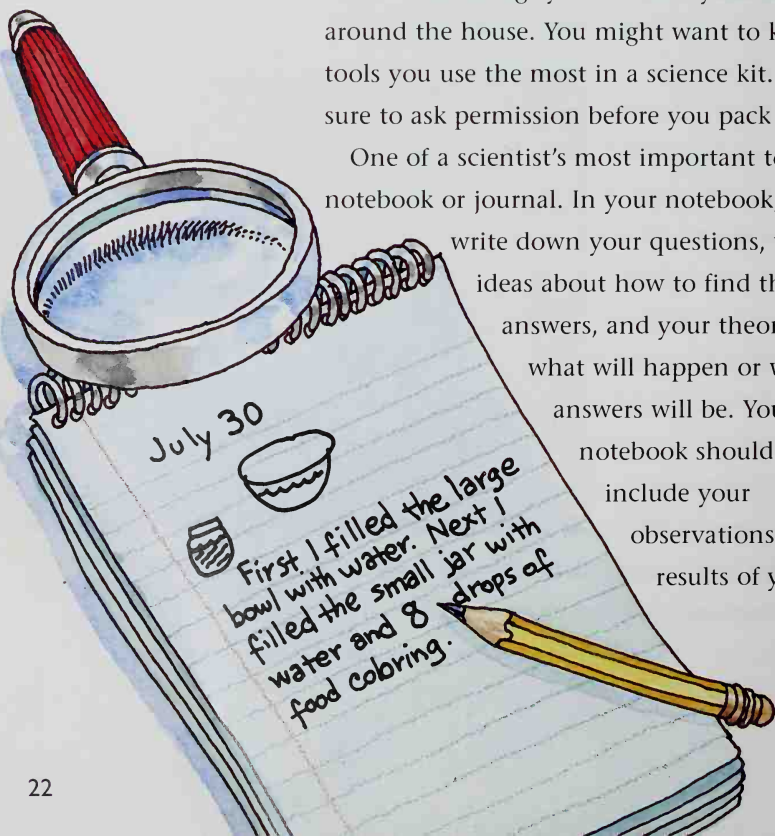 around the house. You might want to
tools you use the most in a science kit.
sure to ask permission before you pack
One of a scientist's most important
notebook or journal. In your notebook
write down your questions,
ideas about how to find
answers, and your
what will happen or
answers will be.
notebook should
include your
observations
results of
July 30
First I filled the large
bowl with water. Next I
filled the small jar with
water and 8 drops of
food coloring.
22